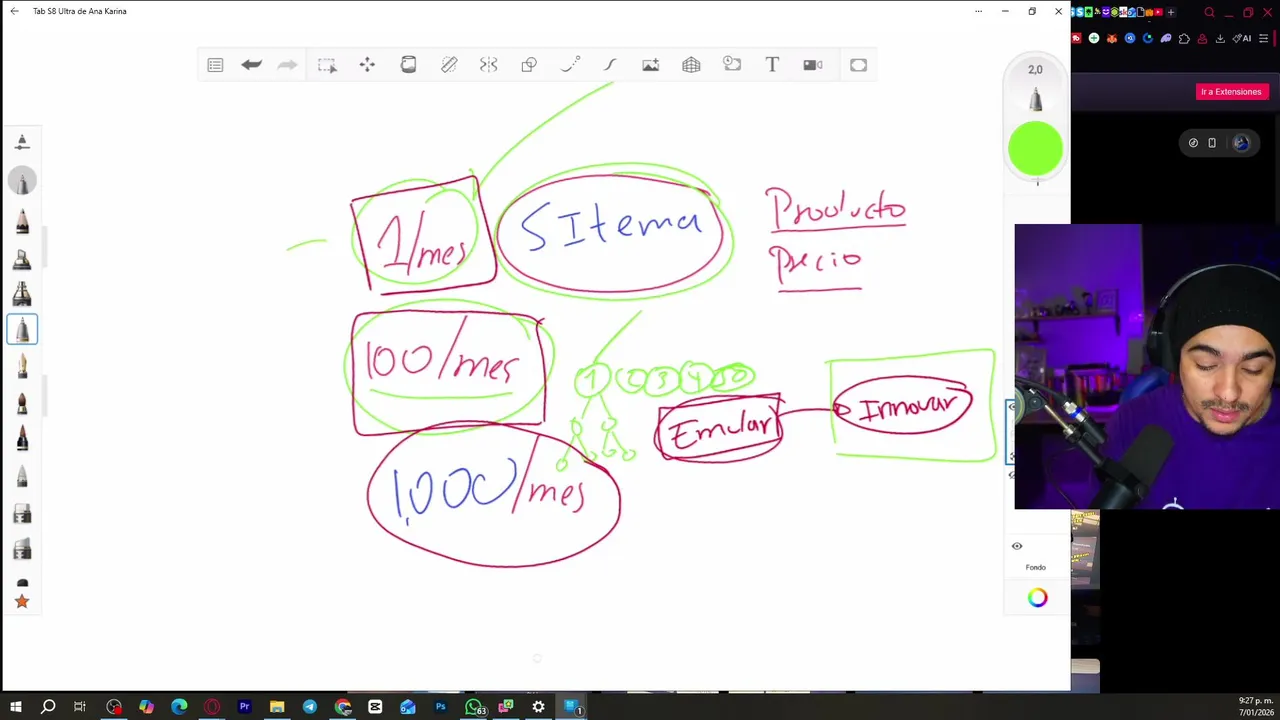 Tab S8 Ultra de Ana Karina
2,0
Ir a Extensiones
AI
1/mes
SItema
Producto
Precio
100/mes
1 2 3 4 50
Emular
Innovar
1,000/mes
Fondo
63
1
9:27 p. m.
7/01/2026